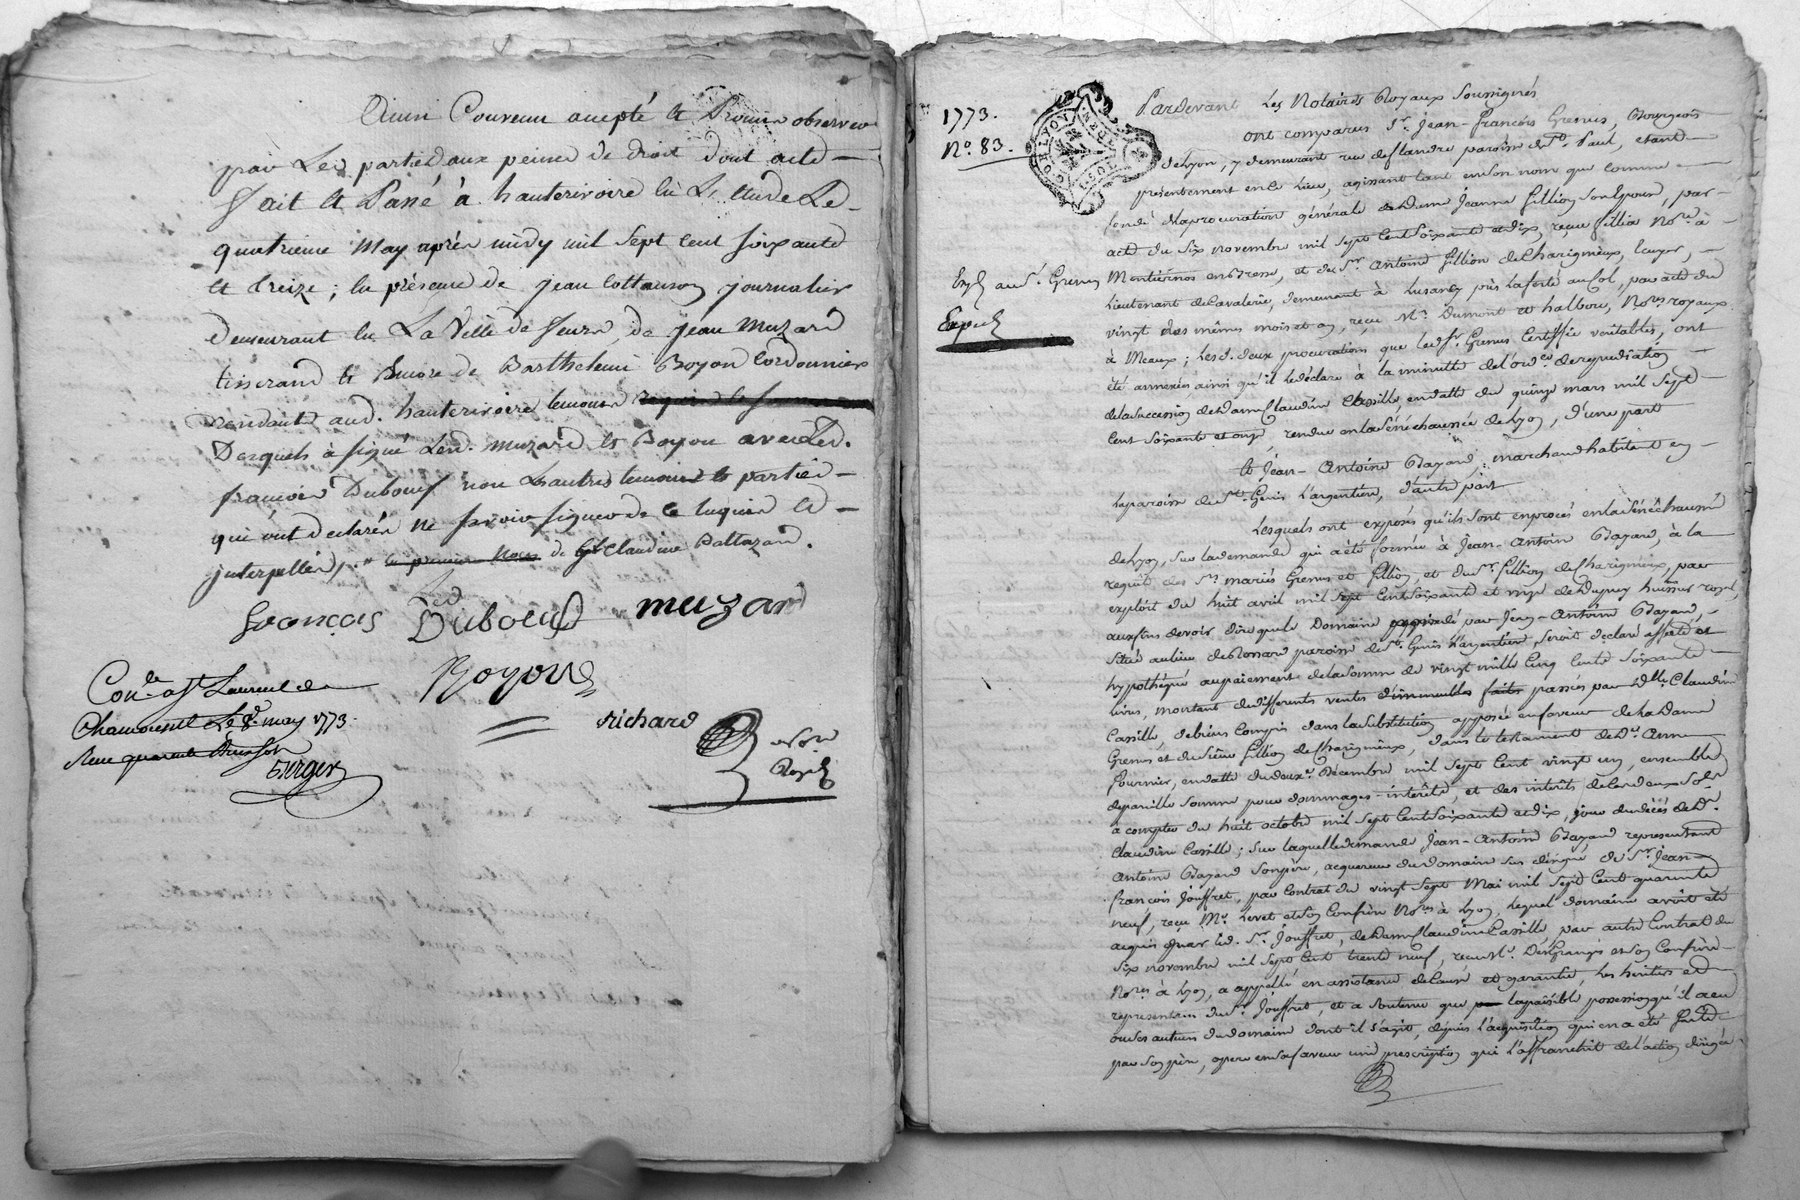 Ainsi Convenu accepté et Promis observer
par Les parties aux peines de droit dont acte
fait et Passé à hauterivoire en L'Etude Le
quatrieme May après midy mil sept cent soixante
et treize ; En présence de jean Cottanson journalier
demeurant en La Ville de feurs, de jean Muzard
tisserand et Encore de Barthelemi Boyon Cordonnier
Residants aud. hauterivoire temoins
Desquels à signé Led. Muzard et Boyon avec Led.
françois Dubouf non Les autres temoins et parties
qui ont declarés ne sçavoir signer de ce Enquis et
interpellés de Claudine Baltazard.
françois Dubouf muzard
Boyon
richard
Con.lé à St Laurent de
Chamousset Le 8e may 1773.
Reçu quarante
Berger
1773.
No. 83.
Exp. au Sr. Grenus
Expié
G. DE LYON
Pardevant Les Notaires Royaux Soussignés
ont comparus Sr. Jean-François Grenus, Bourgeois
de Lyon, y demeurant rue de flandre paroisse de St. Paul, etant
presentement en ce Lieu, agissant tant en son nom que comme
fondé de la procuration générale de Dame Jeanne fillion son Epouse, par
acte du six novembre mil sept Cent Soixante et dix, reçue fillia Nore. à
en Bresse, et de Sr. Antoine fillion de Charigneux, Ecuyer,
Lieutenant de Cavalerie, demeurant à Lusancy près La ferté au Col, par acte du
vingt des mêmes mois et an, reçu Me. Dumont et halbou, Nores royaux
à Meaux ; Lesd. deux procurations que led. Sr. Grenus Certiffie veritables, ont
été annexées ainsi qu'il le déclare à la minutte de l'orde. de repudiation
de la succession de Dame Claudine Cassille, en datte du quinze mars mil sept
Cent soixante et onze, rendue en la Sénéchaussée de Lyon, d'une part
Et Jean-Antoine Bazand, marchand habitant en
la paroisse de St. Genis L'argentière, d'autre part
Lesquels ont exposés qu'ils sont en procès en la Sénéchaussée
de Lyon, sur la demande qui a été formée à Jean-Antoine Bazand, à la
requête des Srs. mariés Grenus et fillion, et du Sr. fillion de Charigneux, par
exploit du huit avril mil sept Cent soixante et onze de Dupuy huissier royal,
aux fins de voir dire que le Domaine par Jean-Antoine Bazand,
situé au lieu de paroisse de St. Genis L'argentière, seroit declaré affecté et
hypothéqué au paiement de la somme de vingt mille Cinq Cents Soixante
livres, montant de differentes ventes d'immeubles faites passées par Dlle. Claudine
Cassille de biens Compris dans la substitution apposée en faveur de la Dame
Grenus et du sieur fillion de Charigneux, dans le testament de De. Anne
fournier, en datte du deuxe. Décembre mil sept Cent vingt un, ensemble
de pareille somme pour dommages-interêts, et des intérêts de lad. deux Sols
à compter du huit octobre mil sept Cent Soixante et dix, jour du décès de De.
Claudine Cassille ; sur laquelle demande Jean-Antoine Bazand representant
Antoine Bazand son père, acquereur du domaine sus désigné de Sr. Jean-
françois Jouffret, par Contrat du vingt sept Mai mil sept Cent quarante
neuf, reçu Me. Levet et son Confrère Nores à Lyon, lequel domaine avoit été
acquis par led. Sr. Jouffret, de Dame Claudine Cassille, par autre Contrat du
six novembre mil sept Cent trente neuf, reçu Me. DesGranges et son Confrère
Nores. à Lyon, a appellé en assistance de Cause et garantie, les héritiers et
representans du Sr. Jouffret, et a soutenu que la paisible possession qu'il a eu
ou ses auteurs du domaine dont il s'agit, depuis l'acquisition qui en a été faite
par son père, opere en sa faveur une prescription qui l'affranchit de l'action dirigée